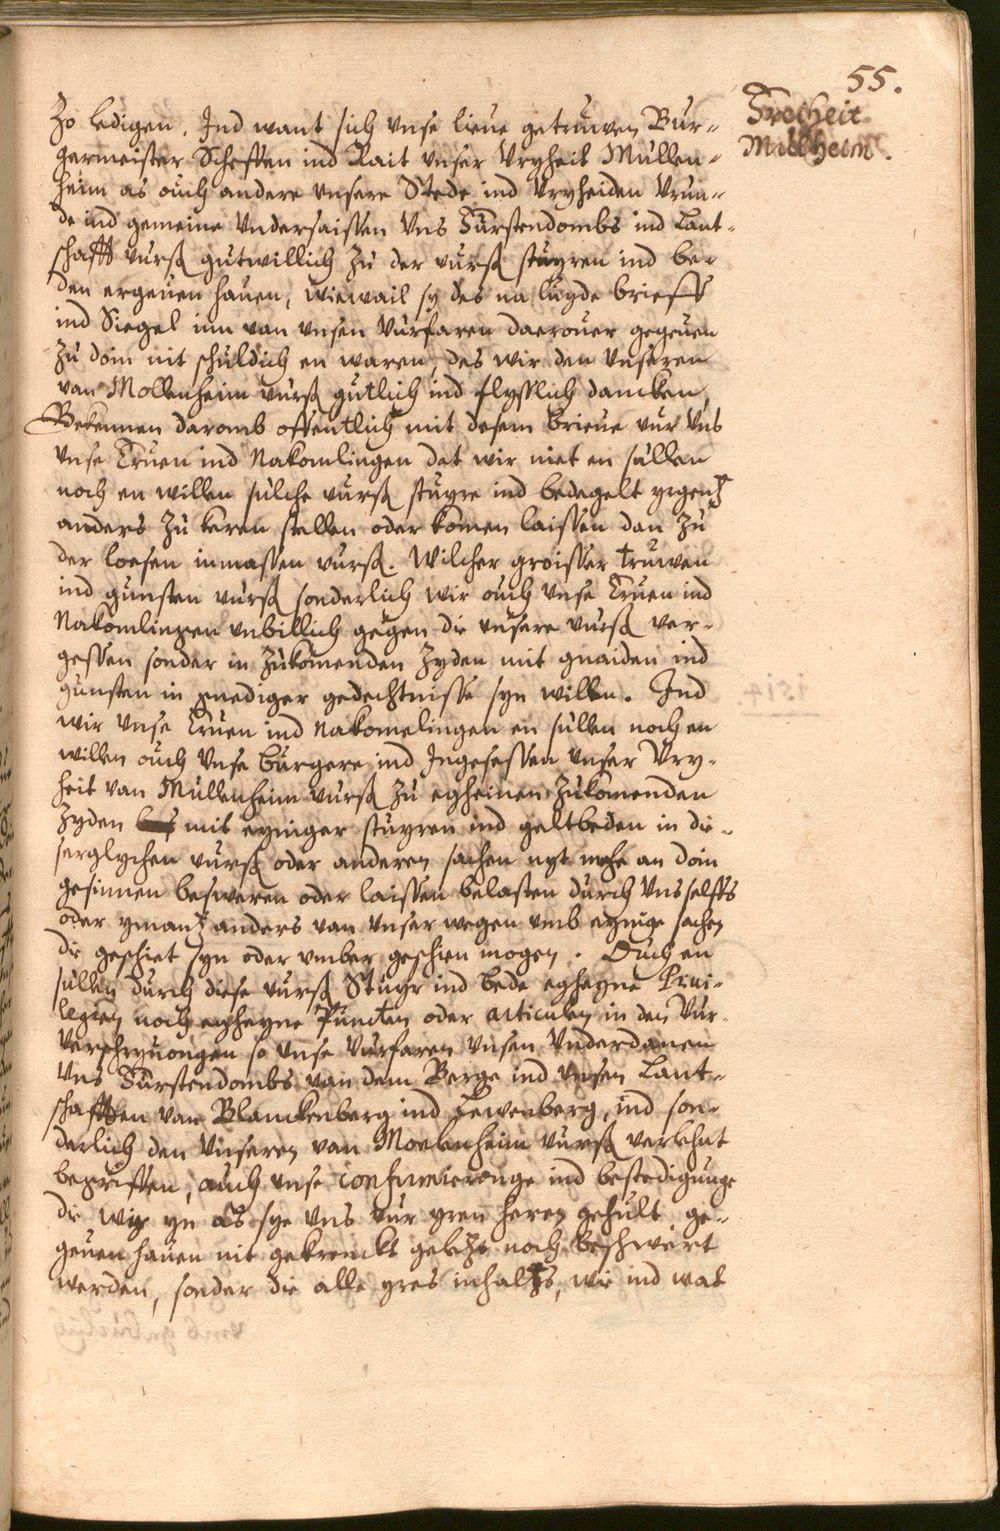 55.
Freiheit
Müllheim.
Zo ledigen. Ind want sich vnse lieue getruwen Bur-
germeister Scheffen ind Rait vnser Vryheit Müllen-
heim as oüch andere vnsere Stede ind Vryheiden Vrun-
de ind gemeine Vndersaissen Vns Fürstendombs ind Lant-
schafft vurß gütwillich Zü der vurß stüyren ind be-
den ergeuen hauen, wiewail sy des na lüyde brieff
ind Siegel inn van vnsen Vürfaren daerouer gegeuen
Zü doin nit schüldich en waren, des wir den Vnseren
van Mollenheim vurß gütlich ind flysslich dancken,
Bekennen daromb offentlich mit desem brieue vür Vns
vnse Eruen ind Nakomlingen dat wir niet en süllen
noch en willen sülche vurß stüyre ind bedegelt yrgentz
anders Zü keren stellen oder komen laissen dan Zü
der loesen inmassen vurß. Wilcher groisser truwen
ind günsten vurß sonderlich wir oüch vnse Eruen ind
Nakomlingen vnbillich gegen die vnsere vurß ver-
gessen sonder in Zükomenden Zyden mit gnaiden ind
günsten in gnediger gedechtnisse syn willen. Ind
wir vnse Eruen ind Nakomelingen en süllen noch en
willen oüch Vnse bürgere ind Ingesessen vnser Vry-
heit van Müllenheim vurß Zü egheinen Zükomenden
Zyden mit eyniger stüyren ind geltbeden in die-
serglychen vurß oder anderen sachen nyt mehe an doin
gesinnen besweren oder laissen belasten dürch Vns selffs
oder ymantz anders van Vnser wegen vmb eynige sachen
die geschiet syn oder vmber geschien mogen. Oüch en
süllen dürch diese vurß Stüyr ind bede egheyne Priui-
legien noch egheyne Püncten oder articulen in den Vür-
Verschryuongen so vnse Vürfaren Vnsen Vnderdanen
Vns Fürstendombs van dem Berge ind vnsen Lant-
schafften van Blanckenberg ind Lewenberg, ind son-
derlich den Vnseren van Moelenheim vurß verlehnt
begriffen, auch vnse confirmieronge ind bestedigunge
die wye yn as sye Vns vür yren heren gehült ge-
geuen hauen nit gekrenckt geletzt noch beschwert
werden, sonder die alle yres inhaltz, wie ind wat